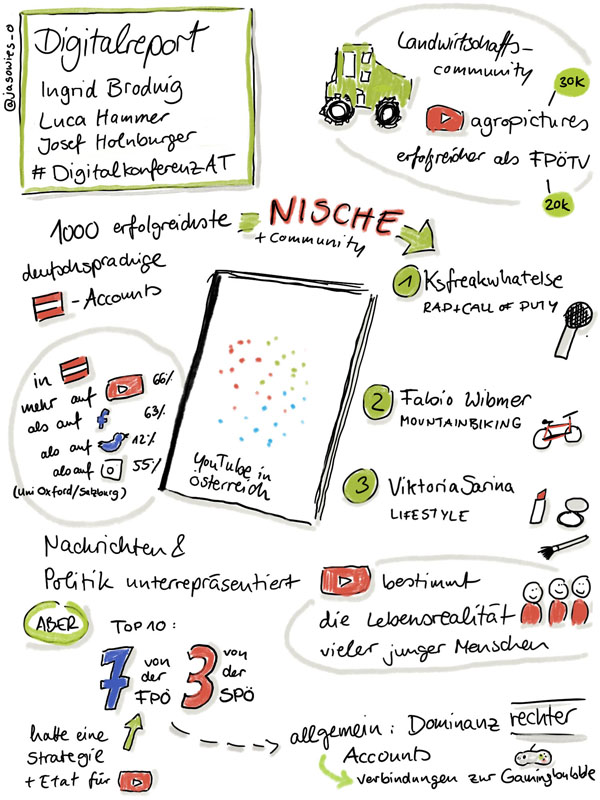 @jasowies_o
Digitalreport
Ingrid Brodnig
Luca Hammer
Josef Holnburger
#DigitalkonferenzAT
Landwirtschafts-
community
30K
agropictures
erfolgreicher als FPÖTV
20K
1000 erfolgreichste
deutschsprachige
-Accounts
= NISCHE
+ community
1 Ksfreakwhatelse
RAP+CALL OF DUTY
2 Fabio Wibmer
MOUNTAINBIKING
3 ViktoriaSarina
LIFESTYLE
in
mehr auf 66%
als auf f 63%
als auf 12%
als auf 55%
(Uni Oxford/Salzburg)
YouTube in
Österreich
Nachrichten &
Politik unterrepräsentiert
ABER
TOP 10:
7 von
der
FPÖ
3 von
der
SPÖ
hatte eine
Strategie
+ Etat für
bestimmt
die Lebensrealität
vieler junger Menschen
allgemein: Dominanz rechter
Accounts
Verbindungen zur Gamingbubble